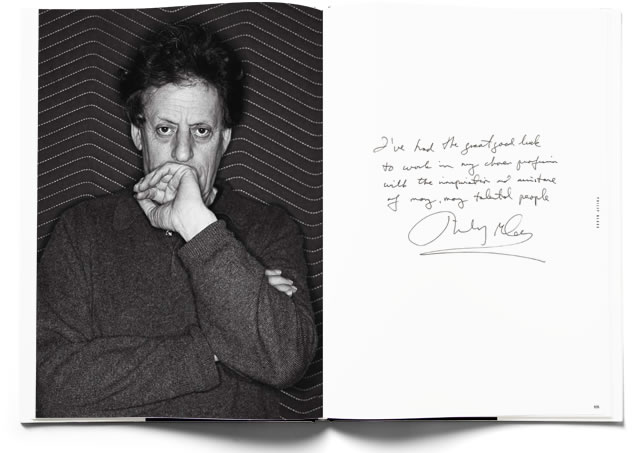 I've had the great good luck
to work in my chosen profession
with the inspiration and assistance
of many, many talented people
Philip Glass